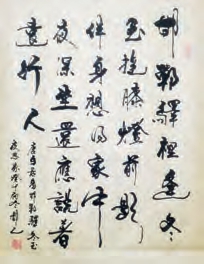 邯鄲驛裡逢冬
至抱膝燈前影
伴身想得家中
夜深坐還應說著
遠行人
唐白居易邯鄲驛冬至
夜思家